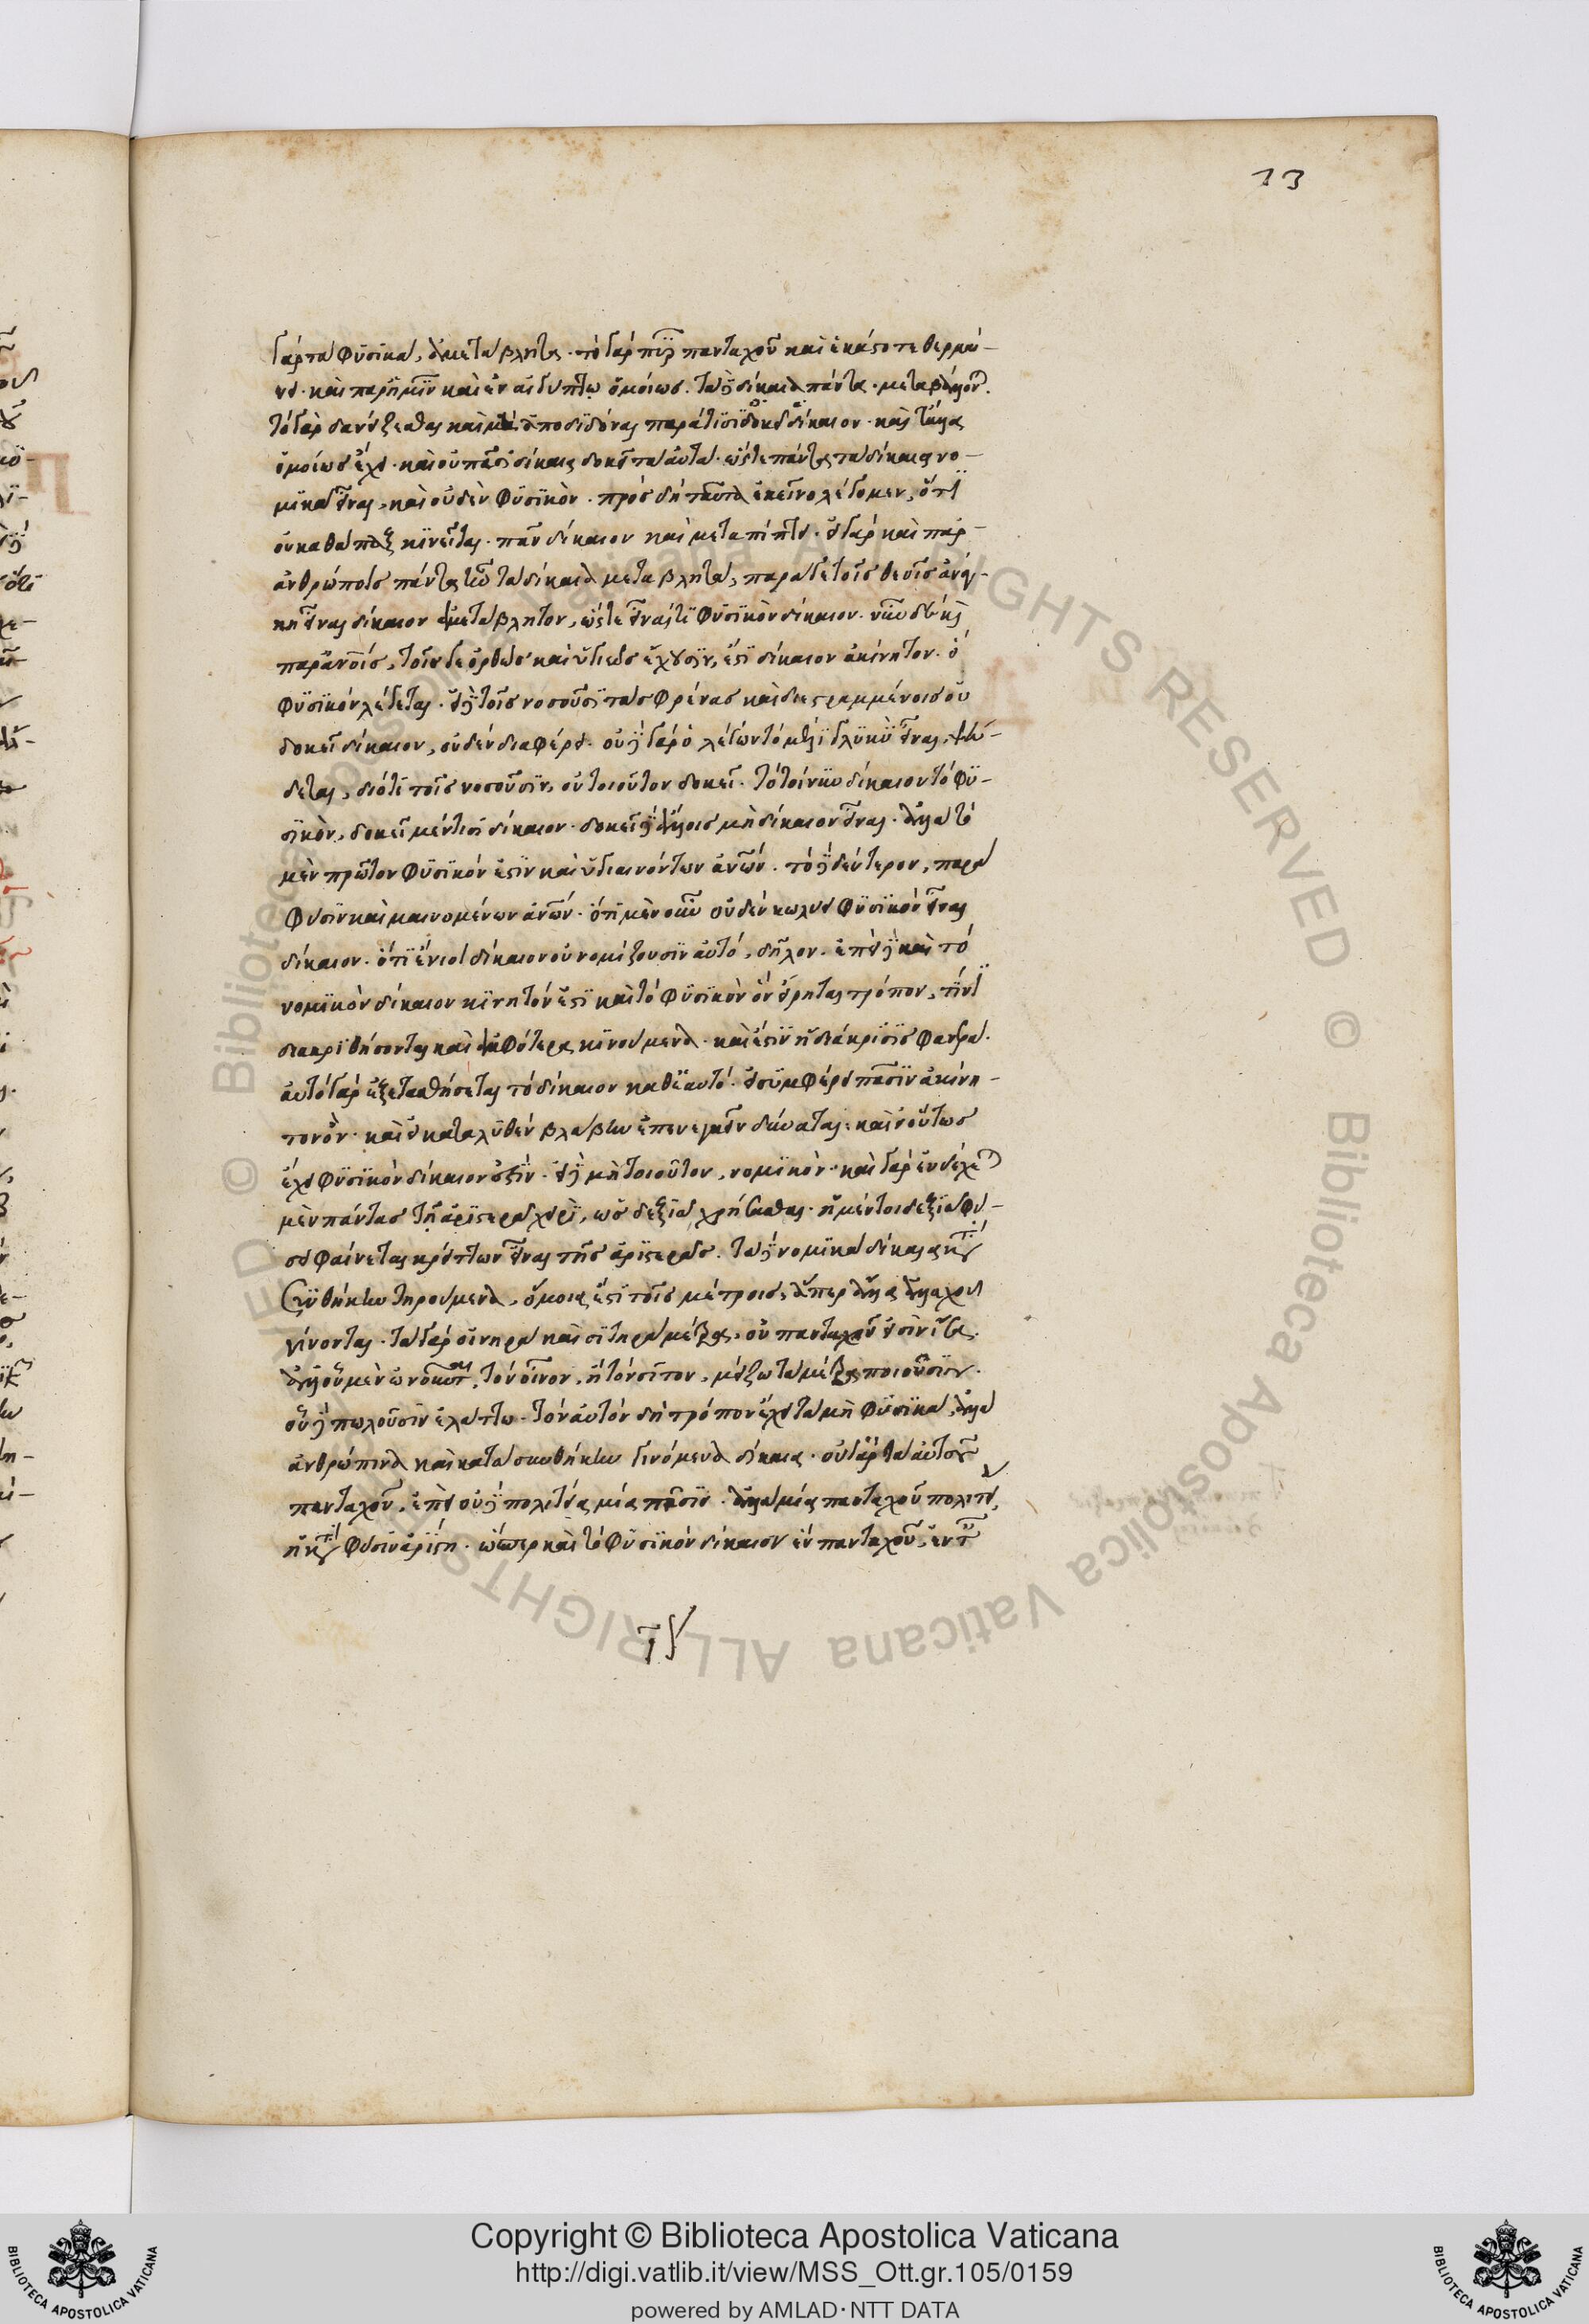 13
γὰρ τὰ φυσικὰ, ἀμετάβλητα. τὸ γὰρ πῦρ πανταχοῦ καὶ ἑκάστοτε θερμαί-
νει. καὶ παρ' ἡμῖν καὶ ἐν αἰγύπτω ὁμοίως. τὰ δὲ δίκαια πάντα. μεταβάλλον.
τὸ γὰρ δανείζεσθαι καὶ μὴ ἀποδιδόναι παρά τισι δοκεῖ δίκαιον. καὶ τἄλλα
ὁμοίως ἔχει. καὶ οὐ πᾶσι δίκαια δοκεῖ τὰ αὐτά. ὥστε πάντα τὰ δίκαια νο-
μικὰ εἶναι, καὶ οὐδὲν φυσικὸν. πρὸς δὴ ταῦτα ἐκεῖνο λέγομεν, ὅτι
οὐ καθάπαξ κινεῖται. πᾶν δίκαιον καὶ μεταπίπτει. εἰ γὰρ καὶ παρ'
ἀνθρώποις πάντα ἦν τὰ δίκαια μεταβλητὰ, παρὰ γε τοῖς θεοῖς ἀνάγ-
κη εἶναι δίκαιον ἀμετάβλητον, ὥστε εἶναί τι φυσικὸν δίκαιον. νῦν δὲ καὶ
παρ' ἀνοις, τοῖς γε ὀρθῶς καὶ ὑγιεῶς ἔχουσιν, ἐστὶ δίκαιον ἀκίνητον. ὁ
φυσικὸν λέγεται. εἰ δὲ τοῖς νοσοῦσι τὰς φρένας καὶ διεστραμμένοις οὐ
δοκεῖ δίκαιον, οὐδὲν διαφέρει. οὐδὲ γὰρ ὁ λέγων τὸ μέλι γλυκὺ εἶναι, ψεύ-
δεται, διότι τοῖς νοσοῦσιν, οὐ τοιοῦτον δοκεῖ. τὸ τοίνυν δίκαιον τὸ φυ-
σικὸν, δοκεῖ μέν τισι δίκαιον. δοκεῖ δὲ ἄλλοις μὴ δίκαιον εἶναι. ἀλλὰ τὸ
μὲν πρῶτον φυσικόν ἐστιν καὶ ὑγιαινόντων ἀνων. τὸ δὲ δεύτερον, παρὰ
φύσιν καὶ μαινομένων ἀνων. ὅτι μὲν οὖν οὐδὲν κωλύει φυσικὸν εἶναι
δίκαιον. ὅτι ἔνιοι δίκαιον οὐ νομίζουσιν αὐτό, δῆλον. ἐπεὶ δὲ καὶ τὸ
νομικὸν δίκαιον κινητόν ἐστι καὶ τὸ φυσικὸν ὃν εἴρηται τρόπον, τίνι
διακριθήσονται καὶ ἀμφότερα κινούμενα. καὶ ἔστιν ἡ διάκρισις φανερά.
αὐτὸ γὰρ ἐξετασθήσεται τὸ δίκαιον καθ' ἑαυτό. εἰ συμφέρει πᾶσιν ἀκίνη-
τον ὂν. καὶ εἰ καταλυθὲν βλάβην ἐπενεγκεῖν δύναται. καὶ εἰ οὕτως
ἔχει φυσικὸν δίκαιον ἐστίν. εἰ δὲ μὴ τοιοῦτον, νομικὸν. καὶ γὰρ ἐνδέχε
μὲν πάντας τῇ ἀριστερᾷ χειρὶ, ὡς δεξιᾷ χρήσασθαι. ἡ μέντοι δεξιὰ φύ-
σει φαίνεται κρείττων εἶναι τῆς ἀριστερᾶς. τὰ δὲ νομικὰ δίκαια κατὰ
συνθήκην τηρούμενα, ὅμοιά ἐστι τοῖς μέτροις, ἅπερ ἄλλα ἀλλαχοῦ
γίνονται. τὰ γὰρ οἰνηρὰ καὶ σιτηρὰ μέτρα, οὐ πανταχοῦ εἰσὶν ἴσα.
ἀλλ' οὗ μὲν ὠνοῦνται, τὸν οἶνον, ἢ τὸν σῖτον, μείζω τὰ μέτρα ποιοῦσιν.
οὗ δὲ πωλοῦσιν ἐλάττω. τὸν αὐτὸν δὴ τρόπον ἔχει τὰ μὴ φυσικὰ, ἀλλὰ
ἀνθρώπινα καὶ κατὰ συνθήκην γινόμενα δίκαια. οὐ γὰρ τὰ αὐτά ἐστι
πανταχοῦ, ἐπεὶ οὐδὲ πολιτεία μία πᾶσιν. ἀλλὰ μία πανταχοῦ πολιτεία,
ἡ κατὰ φύσιν ἀρίστη. ὥσπερ καὶ τὸ φυσικὸν δίκαιον ἓν πανταχοῦ, ἐν
Copyright © Biblioteca Apostolica Vaticana
http://digi.vatlib.it/view/MSS_Ott.gr.105/0159
powered by AMLAD·NTT DATA